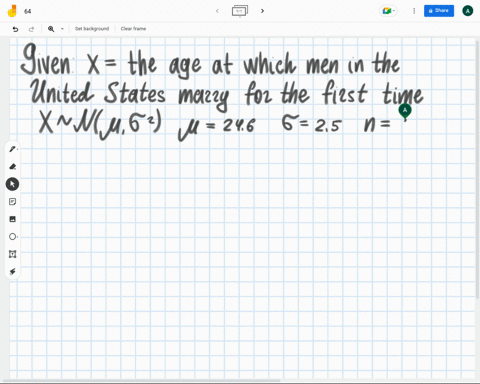 64
1/1
Share
A
Set background
Clear frame
Given: X = the age at which men in the
United States marry for the first time
A
X ~ N(μ, σ²) μ = 24.6 σ = 2.5 n =